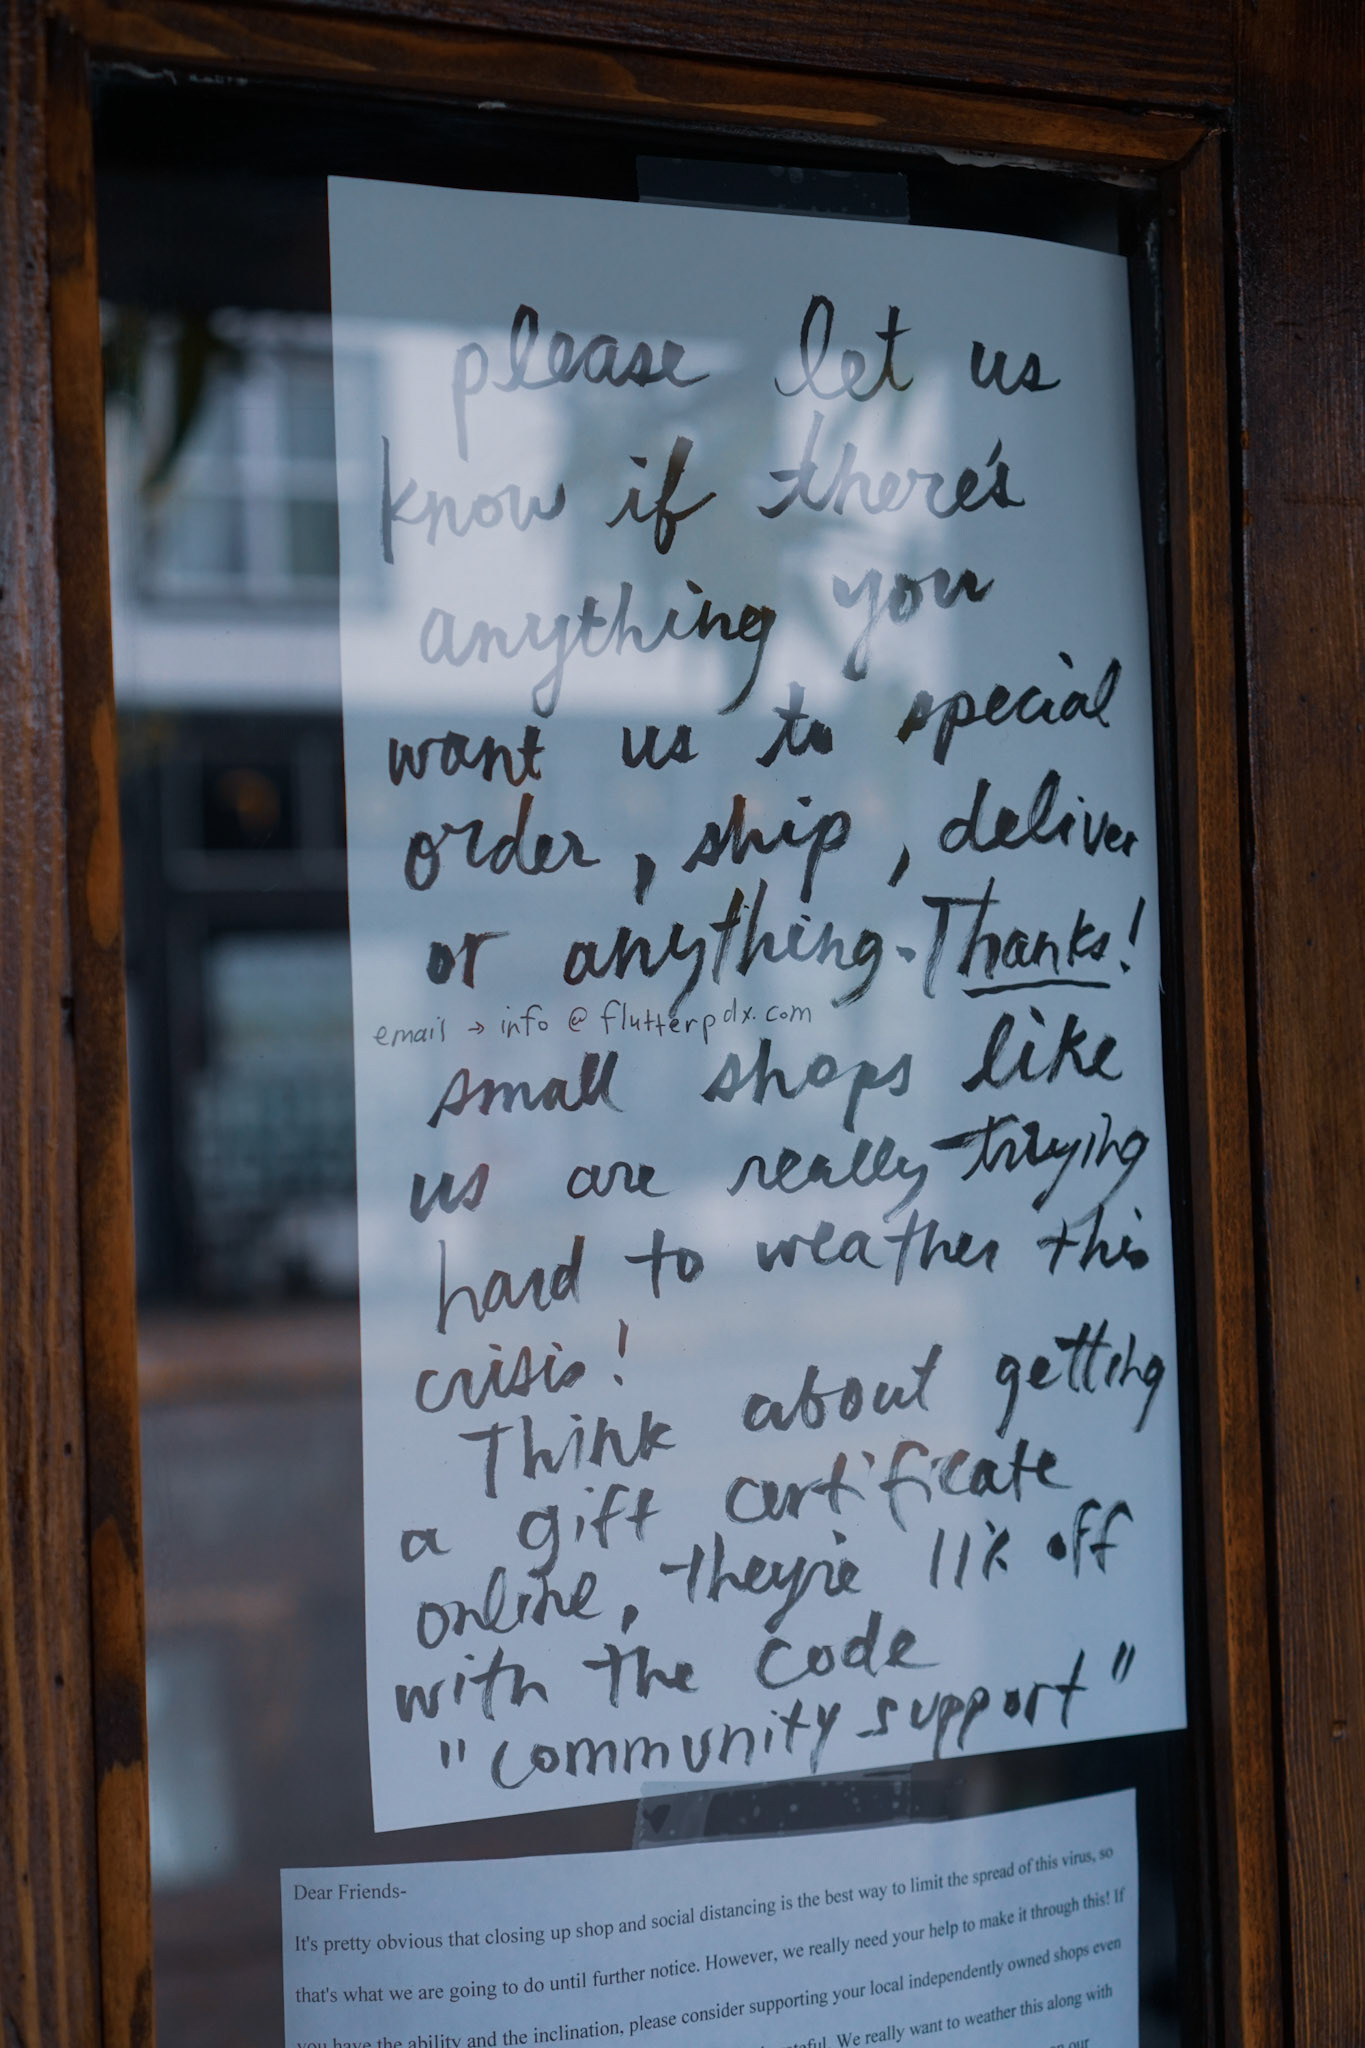 please let us
know if there's
anything you
want us to special
order, ship, deliver
or anything. Thanks!
email → info @ flutterpdx.com
small shops like
us are really trying
hard to weather this
crisis!
Think about getting
a gift certificate
online, they're 11% off
with the code
"community support"
Dear Friends-
It's pretty obvious that closing up shop and social distancing is the best way to limit the spread of this virus, so
that's what we are going to do until further notice. However, we really need your help to make it through this! If
you have the ability and the inclination, please consider supporting your local independently owned shops even
We really want to weather this along with
our